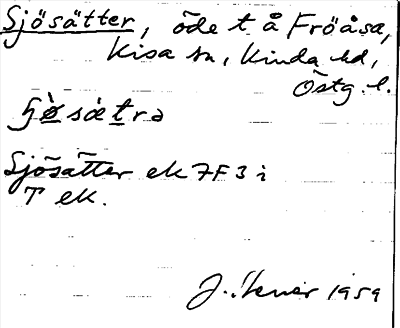 Sjösätter, öde t å Fröåsa,
Kisa sn, Kinda hd,
Östg. l.
Sjösätter ek 7F3 i
T ek.
1959